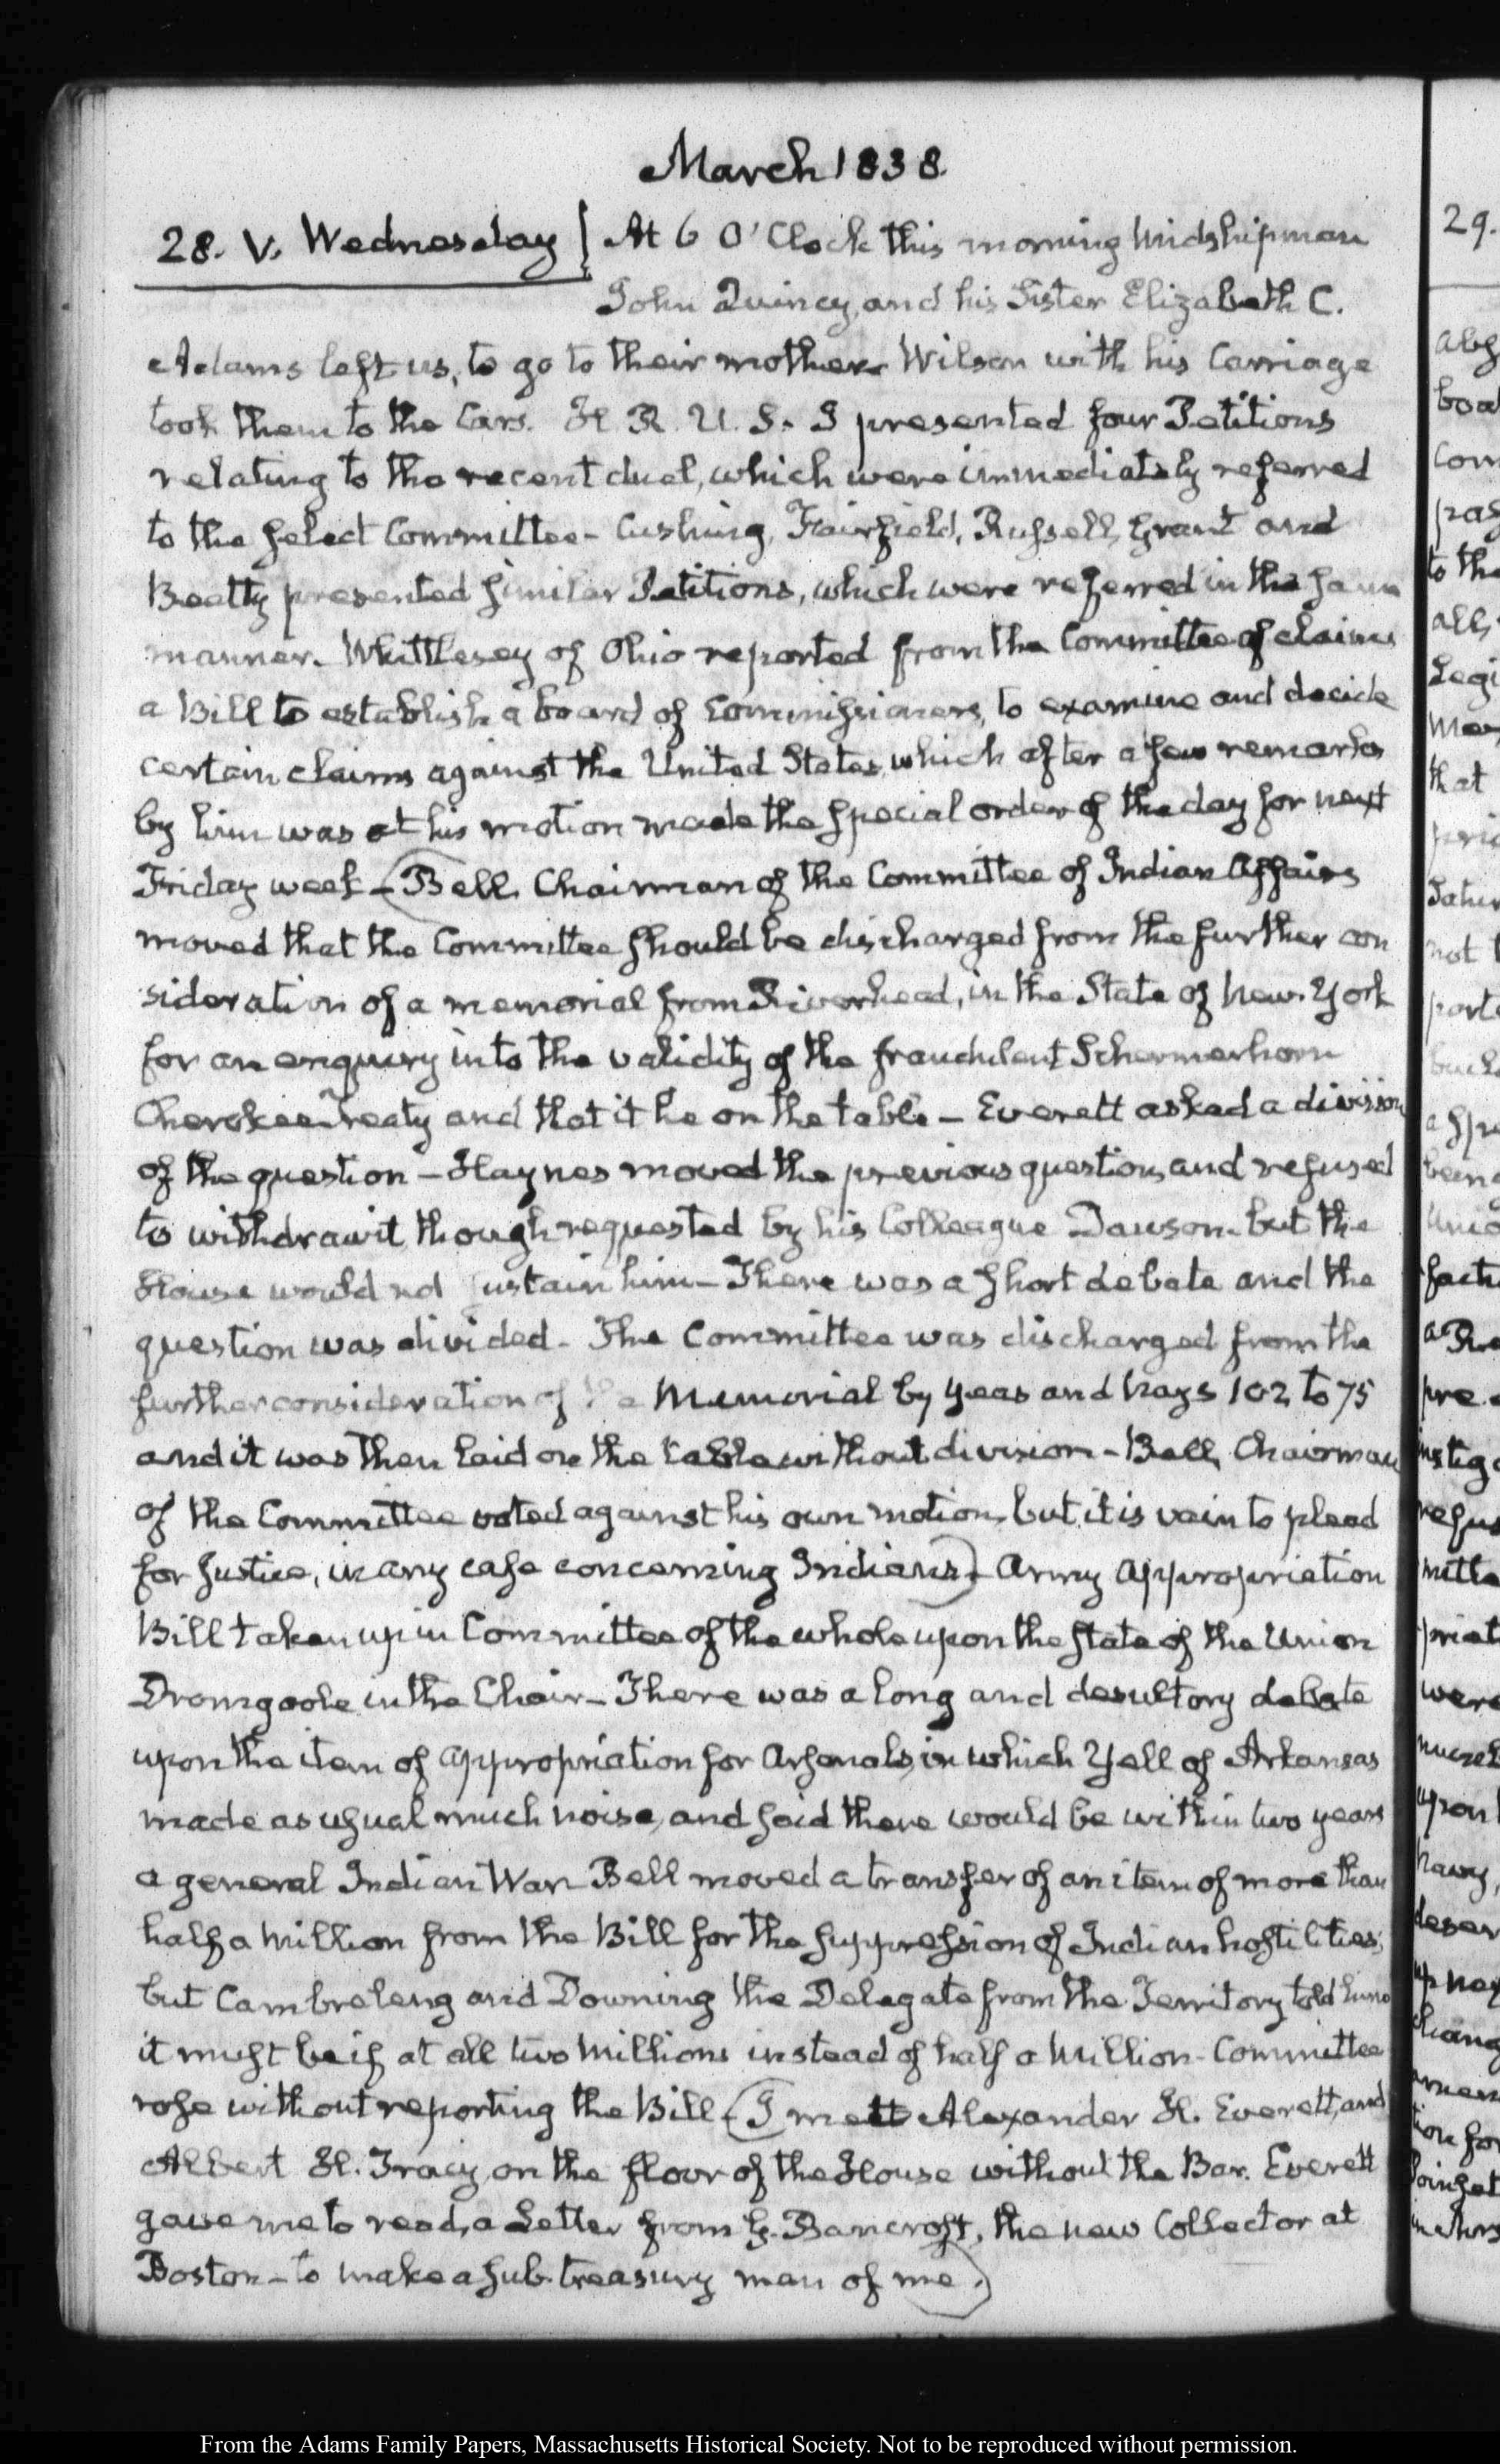 March 1838.
28. V. Wednesday
At 6 O'Clock this morning Midshipman
John Quincy, and his Sister Elizabeth C.
Adams left us, to go to their mother Wilson with his Carriage
took them to the Cars. H. R. U. S. I presented four Petitions
relating to the recent duel, which were immediately referred
to the Select Committee - Cushing, Fairfield, Russell, Grant and
Beatty presented similar Petitions, which were referred in the same
manner. Whittlesey of Ohio reported from the Committee of claims
a Bill to establish a board of Commissioners, to examine and decide
certain claims against the United States, which after a few remarks
by him was at his motion made the special order of the day for next
Friday week - (Bell, Chairman of the Committee of Indian Affairs
moved that the Committee should be discharged from the further con
sideration of a memorial from Riverhead, in the State of New-York
for an enquiry into the validity of the fraudulent Schermerhorn
Cherokee Treaty and that it lie on the table - Everett asked a division
of the question - Haynes moved the previous question, and refused
to withdraw it though requested by his Colleague Dawson - but the
House would not sustain him - There was a short debate and the
question was divided - The Committee was discharged from the
further consideration of the Memorial by Yeas and Nays 102 to 75
and it was then laid on the table without division - Bell, Chairman
of the Committee voted against his own motion, but it is vain to plead
for Justice, in any case concerning Indians) - Army Appropriation
Bill taken up in Committee of the whole upon the state of the Union
Dromgoole in the Chair - There was a long and desultory debate
upon the item of appropriation for Arsenals, in which Yell of Arkansas
made as usual much noise, and said there would be within two years
a general Indian War - Bell moved a transfer of an item of more than
half a million from the Bill for the suppression of Indian hostilities;
but Cambreleng and Downing the Delegate from the Territory told him
it must be if at all two Millions instead of half a Million - Committee
rose without reporting the Bill - (I mett Alexander H. Everett, and
Albert H. Tracy, on the floor of the House without the Bar. Everett
gave me to read, a Letter from G. Bancroft, the new Collector at
Boston - to make a sub-treasury man of me.)
29.
From the Adams Family Papers, Massachusetts Historical Society. Not to be reproduced without permission.